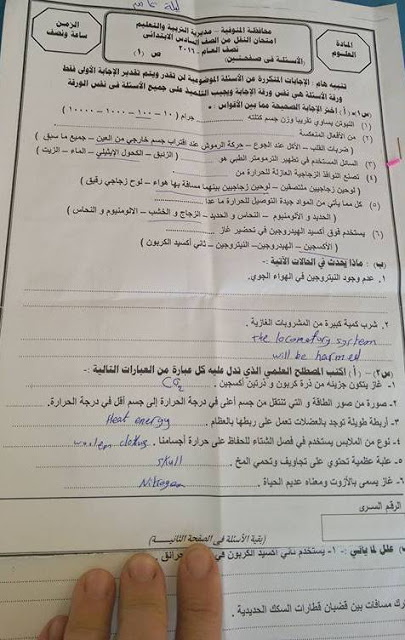 محافظة المنوفية – مديرية التربية والتعليم
امتحان النقل من الصف السادس الابتدائى
نصف العام – ٢٠١٦
الأسئلة فى صفحتين
ص (١)
المادة
العلــوم
الزمن
ساعة ونصف
تنبيه هام : الإجابات المتكررة عن الأسئلة الموضوعية لن تقدر ويتم تقدير الإجابة الأولى فقط
ورقة الأسئلة هى نفس ورقة الإجابة ويجيب التلميذ على جميع الأسئلة فى نفس الورقة
س١ : أ : اختر الإجابة الصحيحة مما بين الأقواس :
(١) النيوتن يساوى تقريبا وزن جسم كتلته .......... جرام ( ١٠ – ١٠٠ – ١٠٠٠ – ١٠٠٠٠ )
(٢) من الأفعال المنعكسة ..........
( ضربات القلب – الأكل عند الجوع – حركة الرموش عند اقتراب جسم خارجي من العين – جميع ما سبق )
(٣) السائل المستخدم في تطهير الترمومتر الطبي هو .......... ( الزئبق – الكحول الإيثيلي – الماء – الزيت )
(٤) تصنع النوافذ الزجاجية العازلة للحرارة من ..........
( لوحين زجاجيين ملتصقين – لوحين زجاجيين بينهما مسافة بها هواء – لوح زجاجي رقيق )
(٥) كل مما يأتي من المواد جيدة التوصيل للحرارة ما عدا ..........
( الحديد و الألومنيوم – النحاس و الحديد – الزجاج و الخشب – الالومنيوم و النحاس )
(٦) يستخدم فوق أكسيد الهيدروجين في تحضير غاز ..........
( الأكسجين – الهيدروجين – النيتروجين – ثاني أكسيد الكربون )
(ب) : ماذا يحدث في الحالات الآتية :-
١. عدم وجود النيتروجين في الهواء الجوي.
٢. شرب كمية كبيرة من المشروبات الغازية .
the locomotory system
will be harmed
س٢ – (أ) : اكتب المصطلح العلمي الذي تدل عليه كل عبارة من العبارات التالية :-
١- غاز يتكون جزيئه من ذرة كربون و ذرتين أكسجين . CO2
٢- صورة من صور الطاقة و التي تنتقل من جسم أعلى في درجة الحرارة إلى جسم أقل في درجة الحرارة.
Heat energy
٣- أربطة طويلة توجد بالعضلات تعمل على ربطها بالعظام .
٤- نوع من الملابس يستخدم في فصل الشتاء للحفاظ على حرارة أجسامنا . woolen clothes
٥- علبة عظمية تحتوي على تجاويف وتحمي المخ . skull
٦- غاز يسمى بالأزوت ومعناه عديم الحياة . Nitrogen
الرقم السرى
(بقية الأسئلة في الصفحة الثانيـــة)
علل لما يأتي :- ١- يستخدم ثاني أكسيد الكربون في
حرائق .
ترك مسافات بين قضبان قطارات السكك الحديدية .